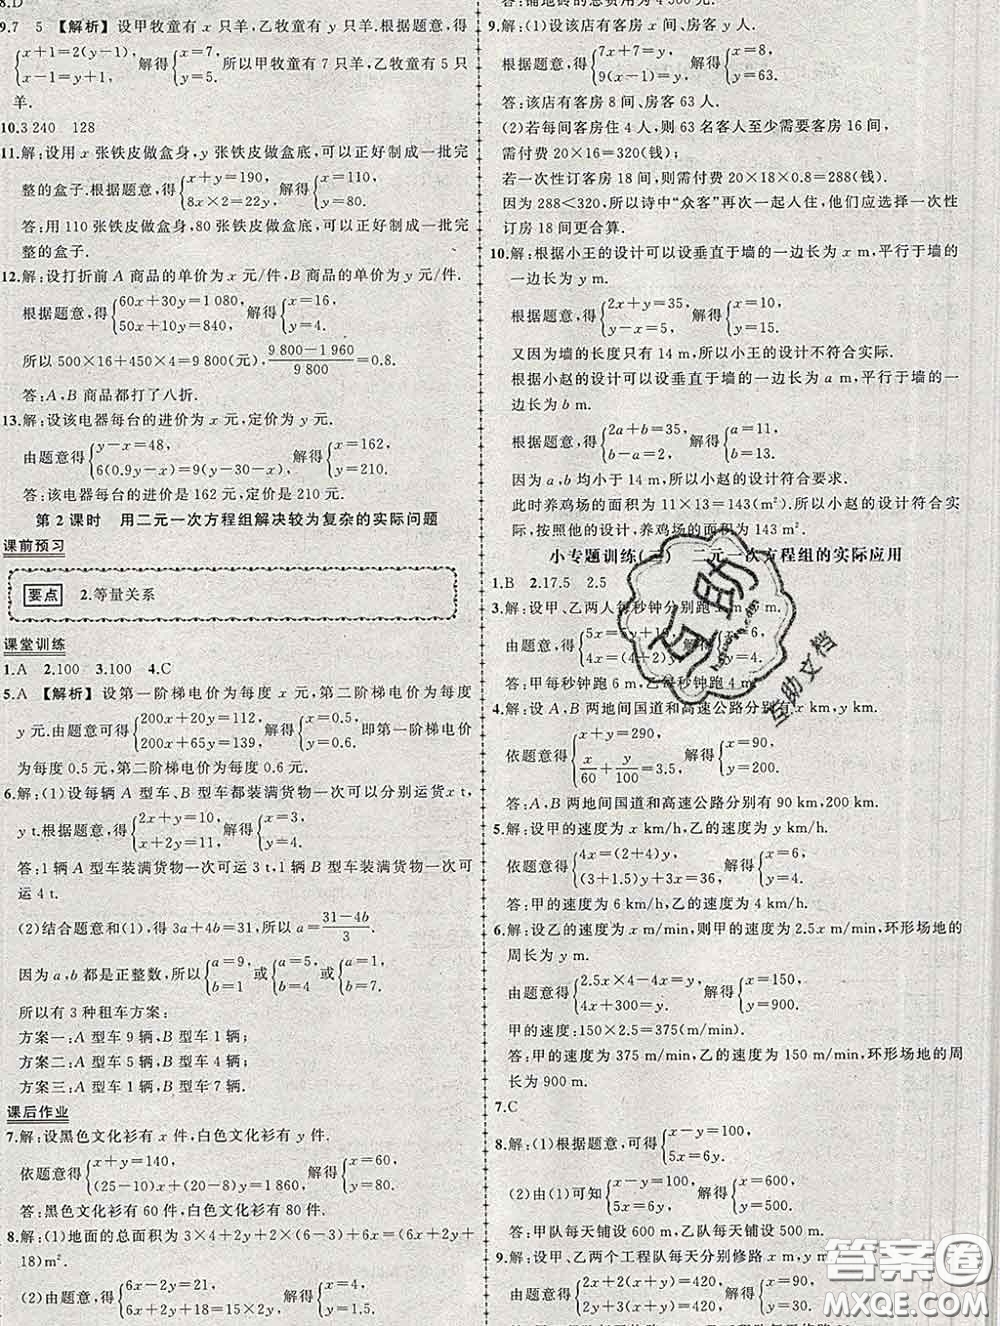 8.D
9.7　5　【解析】设甲牧童有 x 只羊,乙牧童有 y 只羊.根据题意,得
{x+1=2(y-1), x-1=y+1, 解得{x=7, y=5. 所以甲牧童有 7 只羊,乙牧童有 5 只
羊.
10.3 240　128
11.解:设用 x 张铁皮做盒身,y 张铁皮做盒底,可以正好制成一批完
整的盒子.根据题意,得{x+y=190, 8x×2=22y, 解得{x=110, y=80.
答:用 110 张铁皮做盒身,80 张铁皮做盒底,可以正好制成一批完
整的盒子.
12.解:设打折前 A 商品的单价为 x 元/件,B 商品的单价为 y 元/件.
根据题意,得{60x+30y=1 080, 50x+10y=840, 解得{x=16, y=4.
所以 500×16+450×4=9 800(元),(9 800-1 960)/9 800=0.8.
答:A,B 商品都打了八折.
13.解:设该电器每台的进价为 x 元,定价为 y 元.
由题意得{y-x=48, 6(0.9y-x)=9(y-30-x), 解得{x=162, y=210.
答:该电器每台的进价是 162 元,定价是 210 元.
第 2 课时　用二元一次方程组解决较为复杂的实际问题
课前预习
要点　2.等量关系
课堂训练
1.A　2.100　3.100　4.C
5.A　【解析】设第一阶梯电价为每度 x 元,第二阶梯电价为每度
y 元.由题意可得{200x+20y=112, 200x+65y=139, 解得{x=0.5, y=0.6. 即第一阶梯电价
为每度 0.5 元,第二阶梯电价为每度 0.6 元.
6.解:(1)设每辆 A 型车、B 型车都装满货物一次可以分别运货 x t,
y t.根据题意,得{2x+y=10, x+2y=11, 解得{x=3, y=4.
答:1 辆 A 型车装满货物一次可运 3 t,1 辆 B 型车装满货物一次可
运 4 t.
(2)结合题意和(1),得 3a+4b=31,所以 a=(31-4b)/3.
因为 a,b 都是正整数,所以{a=9, b=1 或{a=5, b=4 或{a=1, b=7.
所以有 3 种租车方案:
方案一:A 型车 9 辆,B 型车 1 辆;
方案二:A 型车 5 辆,B 型车 4 辆;
方案三:A 型车 1 辆,B 型车 7 辆.
课后作业
7.解:设黑色文化衫有 x 件,白色文化衫有 y 件.
依题意得{x+y=140, (25-10)x+(20-8)y=1 860, 解得{x=60, y=80.
答:黑色文化衫有 60 件,白色文化衫有 80 件.
8.解:(1)地面的总面积为 3×4+2y+2×(6-3)+6x=(6x+2y+
18)m².
(2)由题意,得{6x-2y=21, 6x+2y+18=15×2y, 解得{x=4, y=1.5,
9.解:(1)设该店有客房 x 间,房客 y 人.
根据题意,得{7x+7=y, 9(x-1)=y, 解得{x=8, y=63.
答:该店有客房 8 间、房客 63 人.
(2)若每间客房住 4 人,则 63 名客人至少需要客房 16 间,
需付费 20×16=320(钱);
若一次性订客房 18 间,则需付费 20×18×0.8=288(钱).
因为 288<320,所以诗中“众客”再次一起入住,他们应选择一次性
订房 18 间更合算.
10.解:根据小王的设计可以设垂直于墙的一边长为 x m,平行于墙的
一边长为 y m.
根据题意,得{2x+y=35, y-x=5, 解得{x=10, y=15.
又因为墙的长度只有 14 m,所以小王的设计不符合实际.
根据小赵的设计可以设垂直于墙的一边长为 a m,平行于墙的一
边长为 b m.
根据题意,得{2a+b=35, b-a=2, 解得{a=11, b=13.
因为均小于 14 m,所以小赵的设计符合要求.
此时养鸡场的面积为 11×13=143(m²).
所以,按照他的设计,养鸡场的面积为 143 m².
小专题训练( )　二元一次方程组的实际应用
1.B　2.17.5　2.5
3.解:设甲、乙两人每秒钟分别跑 x m,y m.
由题意,得{5x=5y+10, 4x=(4+2)y, 解得{x=6, y=4.
答:甲每秒钟跑 6 m,乙每秒钟跑 4 m.
4.解:设 A,B 两地间国道和高速公路分别有 x km,y km.
依题意,得{x+y=290, x/60+y/100=3.5, 解得{x=90, y=200.
答:A,B 两地间国道和高速公路分别有 90 km,200 km.
5.解:设甲的速度为 x km/h,乙的速度为 y km/h.
依题意得{4x=(2+4)y, (3+1.5)x+3y=39, 解得{x=6, y=4.
答:甲的速度为 6 km/h,乙的速度为 4 km/h.
6.解:设乙的速度为 x m/min,则甲的速度为 2.5x m/min,环形场地的
周长为 y m.
由题意得{2.5x×4-4x=y, 4x+300=y, 解得{x=150, y=900.
甲的速度:150×2.5=375(m/min).
答:甲的速度为 375 m/min,乙的速度为 150 m/min,环形场地的周
长为 900 m.
7.C
8.解:(1)根据题意,可得{x-y=100, 5x=6y.
(2)由(1)可知{x-y=100, 5x=6y, 解得{x=600, y=500.
答:甲队每天铺设 600 m,乙队每天铺设 500 m.
9.解:设甲、乙两个工程队每天分别修路 x m,y m.
由题意得{2x+2(x+y)=420, 2y+3(x+y)=420, 解得{x=
互助
互助文档
答案圈
MXQE.COM